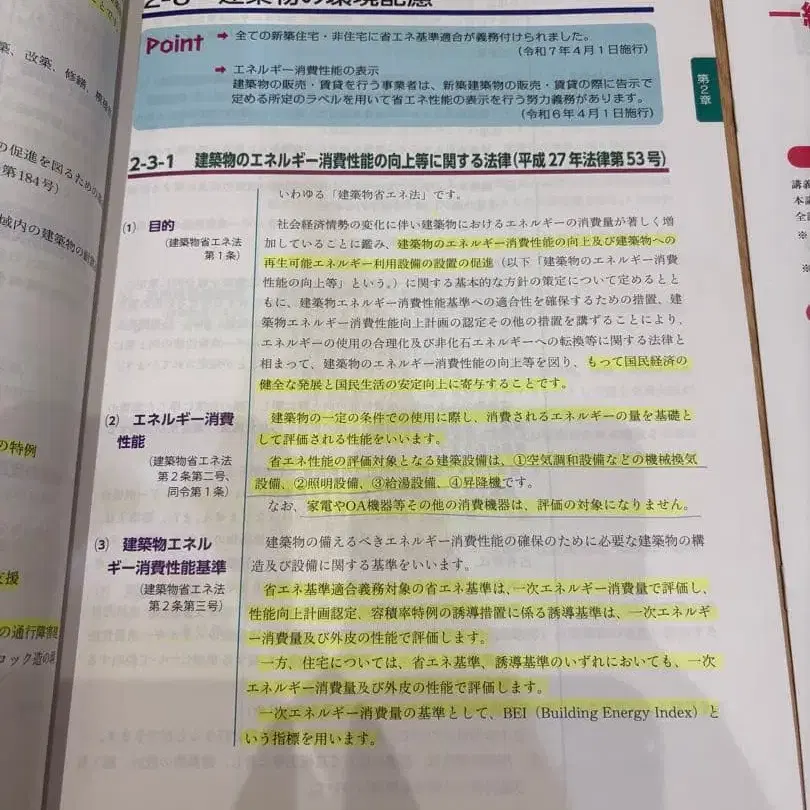 2-3 建築物の環境配慮
Point
➡ 全ての新築住宅・非住宅に省エネ基準適合が義務付けられました。
(令和7年4月1日施行)
➡ エネルギー消費性能の表示
建築物の販売・賃貸を行う事業者は、新築建築物の販売・賃貸の際に告示で
定める所定のラベルを用いて省エネ性能の表示を行う努力義務があります。
(令和6年4月1日施行)
第2章
2-3-1 建築物のエネルギー消費性能の向上等に関する法律(平成27年法律第53号)
いわゆる「建築物省エネ法」です。
(1) 目的
(建築物省エネ法
第1条)
社会経済情勢の変化に伴い建築物におけるエネルギーの消費量が著しく増
加していることに鑑み、建築物のエネルギー消費性能の向上及び建築物への
再生可能エネルギー利用設備の設置の促進(以下「建築物のエネルギー消費
性能の向上等」という。)に関する基本的な方針の策定について定めるとと
もに、建築物エネルギー消費性能基準への適合性を確保するための措置、建
築物エネルギー消費性能向上計画の認定その他の措置を講ずることにより、
エネルギーの使用の合理化及び非化石エネルギーへの転換等に関する法律と
相まって、建築物のエネルギー消費性能の向上等を図り、もって国民経済の
健全な発展と国民生活の安定向上に寄与することです。
(2) エネルギー消費
性能
(建築物省エネ法
第2条第二号、
同令第1条)
建築物の一定の条件での使用に際し、消費されるエネルギーの量を基礎と
して評価される性能をいいます。
省エネ性能の評価対象となる建築設備は、①空気調和設備などの機械換気
設備、②照明設備、③給湯設備、④昇降機です。
なお、家電やOA機器等その他の消費機器は、評価の対象になりません。
(3) 建築物エネル
ギー消費性能基準
(建築物省エネ法
第2条第三号)
建築物の備えるべきエネルギー消費性能の確保のために必要な建築物の構
造及び設備に関する基準をいいます。
省エネ基準適合義務対象の省エネ基準は、一次エネルギー消費量で評価し、
性能向上計画認定、容積率特例の誘導措置に係る誘導基準は、一次エネルギ
ー消費量及び外皮の性能で評価します。
一方、住宅については、省エネ基準、誘導基準のいずれにおいても、一次
エネルギー消費量及び外皮の性能で評価します。
一次エネルギー消費量の基準として、BEI(Building Energy Index)と
いう指標を用います。
築、改築、修繕、模様
の促進を図るための
第184号)
域内の建築物の
の特例
支援
の通行障害
ロック造の
講義
本講
全
※